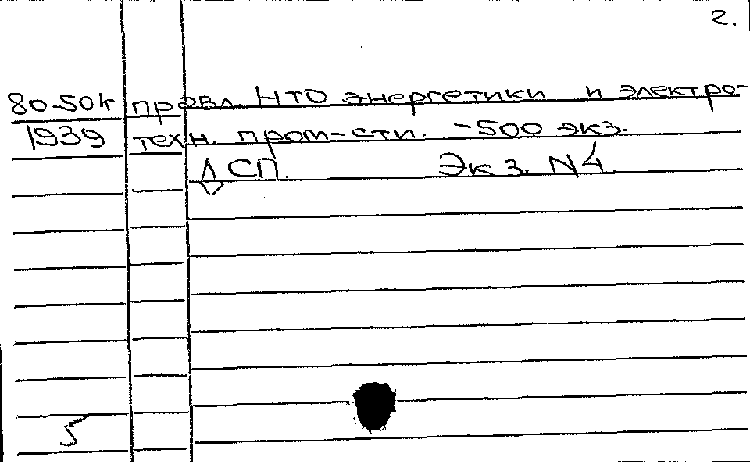 2.
80-50к правл. НТО энергетики и электро-
1939 техн. пром-сти. -500 экз.
ДСП. Экз. N4
5